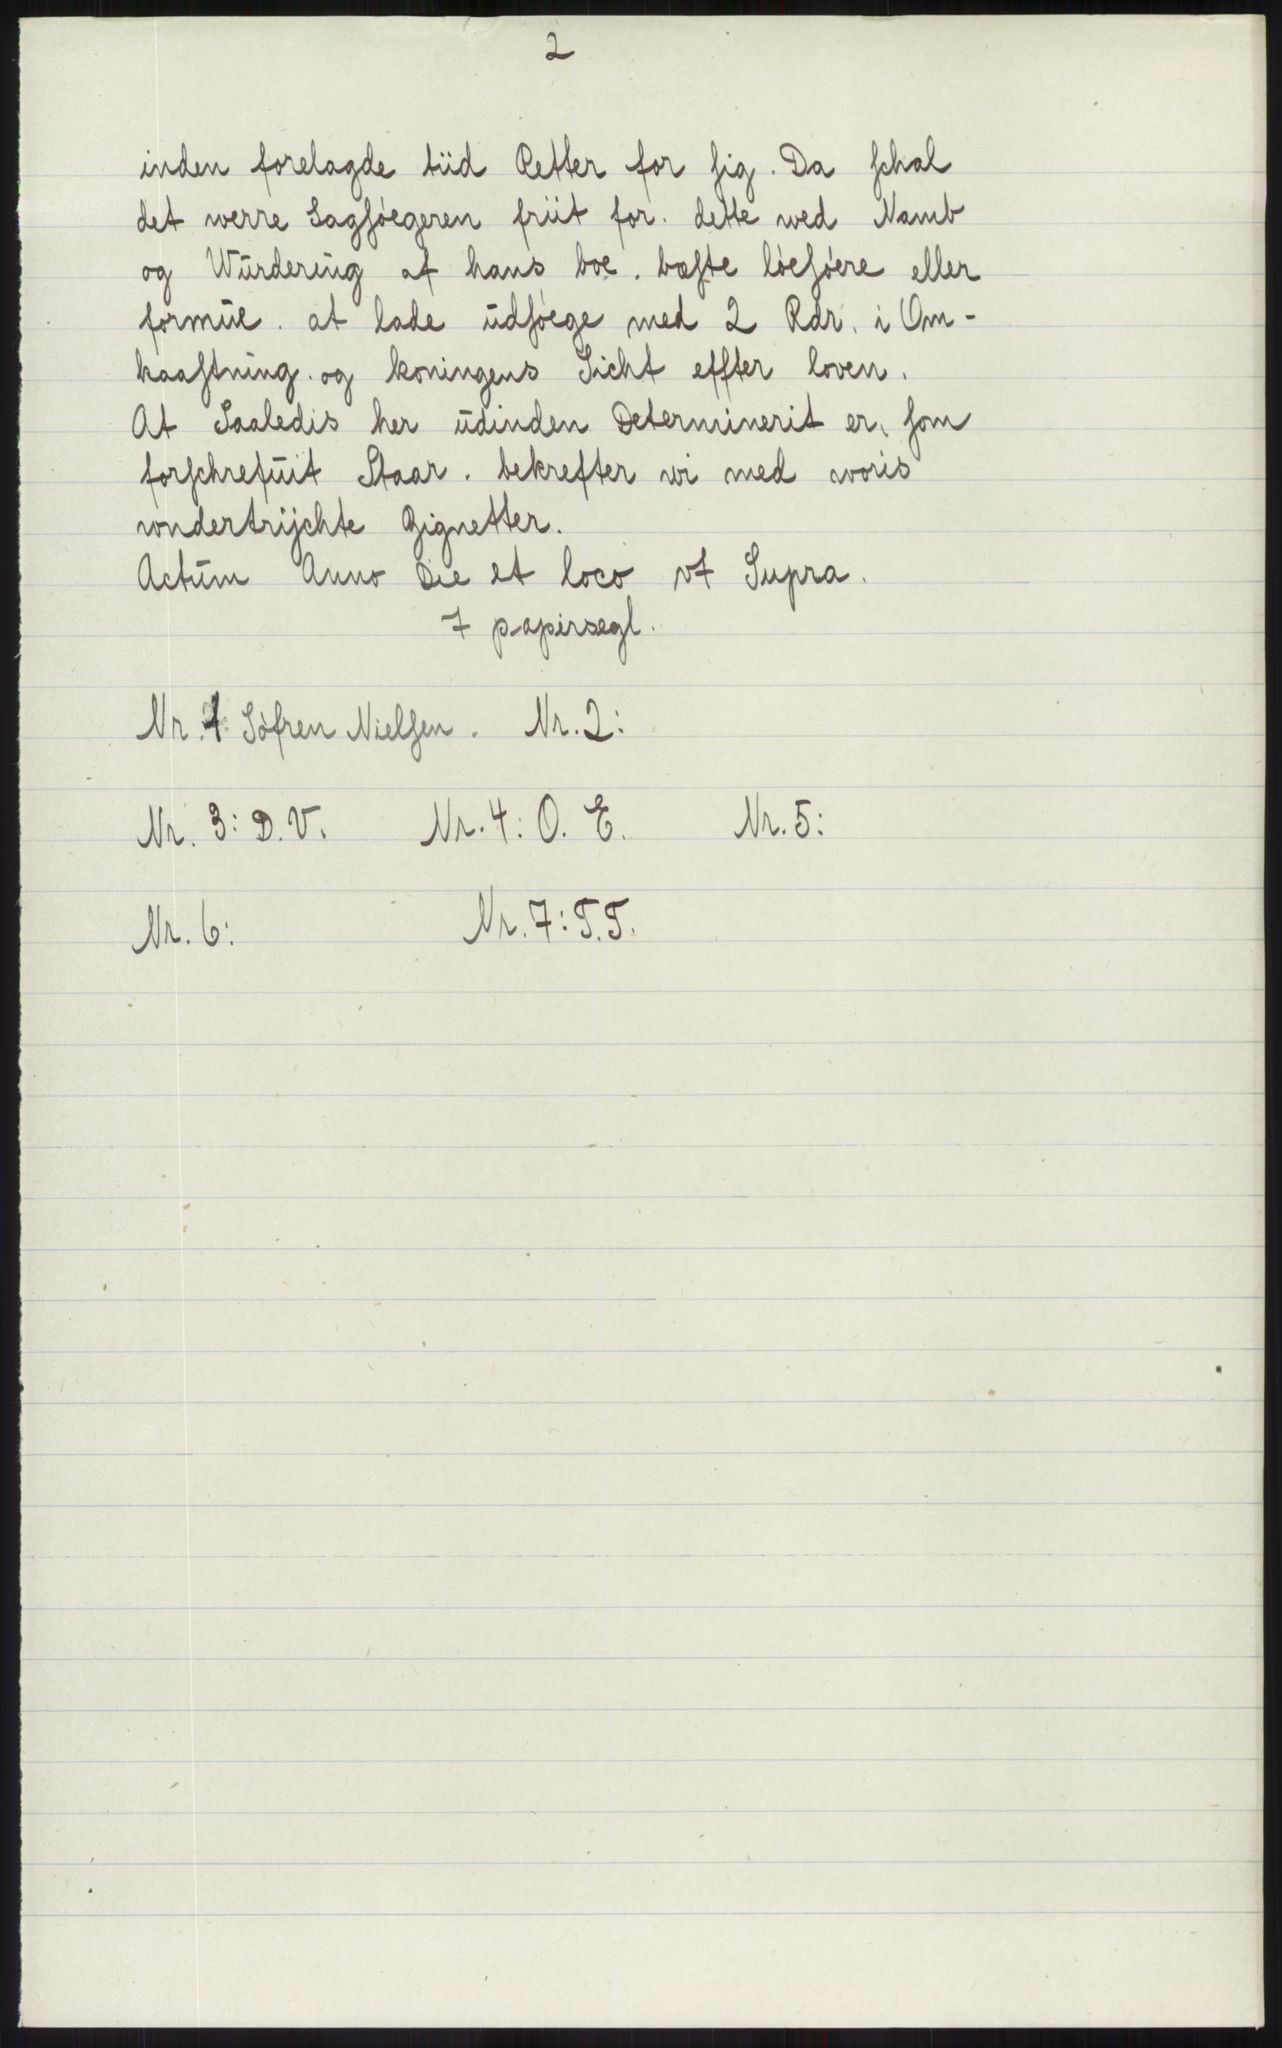 2
inden forelagde tiid Retter for sig. Da schal
det werre Sagsøegeren friit for. dette wed Namb
og Würdering af hans boe. bæste løesøere eller
formüe. at lade üdsøege med 2 Rdr. i Om-
kaastning. og koningens Sicht effter loven.
At Saaledis her üdinden Determinerit er, som
forschrefüit Staar. bekrefter wi med woris
wndertrÿchte Zignetter.
Actüm Anno Die et loco vt Supra.
7 papirsegl.
Nr. 1 Søfren Nielsen. Nr. 2:
Nr. 3: D. V. Nr. 4: O. E. Nr. 5:
Nr. 6: Nr. 7: T. T.